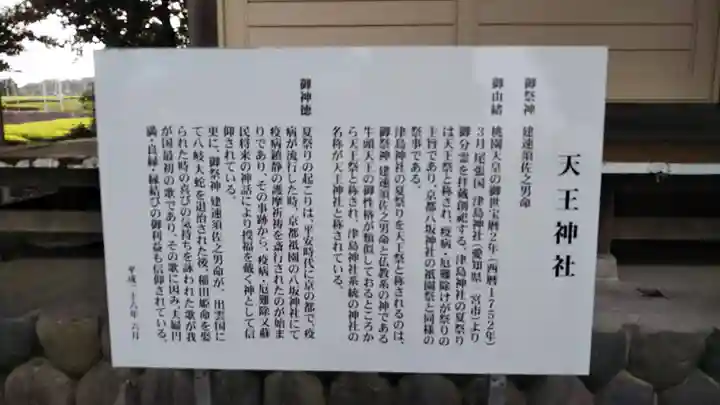 天王神社
御祭神　建速須佐之男命
御由緒　桃園天皇の御世宝暦2年(西暦1752年)
3月尾張国　津島神社(愛知県　宮市)より
御分霊を拝戴創祀する。津島神社の夏祭り
は天王祭と称され、疫病・厄難除けが祭りの
主旨であり、京都八坂神社の祇園祭と同様の
祭事である。
津島神社の夏祭りを天王祭と称されるのは、
御祭神　建速須佐之男命と仏教系の神である
牛頭天王の御性格が類似しておるところか
ら天王祭と称され、津島神社系統の神社の
名称が天王神社と称されている。
御神徳　夏祭りの起こりは、平安時代に京の都で、疫
病が流行した時、京都祇園の八坂神社にて
疫病鎮静の護摩祈祷を斎行されたのが始ま
りであり、その事跡から、疫病・厄難除又蘇
民将来の神話により授福を戴く神として信
仰されている。
更に、御祭神　建速須佐之男命が、出雲国に
て八岐大蛇を退治された後、稲田姫命を娶
られた時の喜びの気持ちを詠われた歌が我
が国最初の歌であり、その歌に因み、夫婦円
満・良縁・縁結びの御利益も信仰されている。
平成二十八年六月